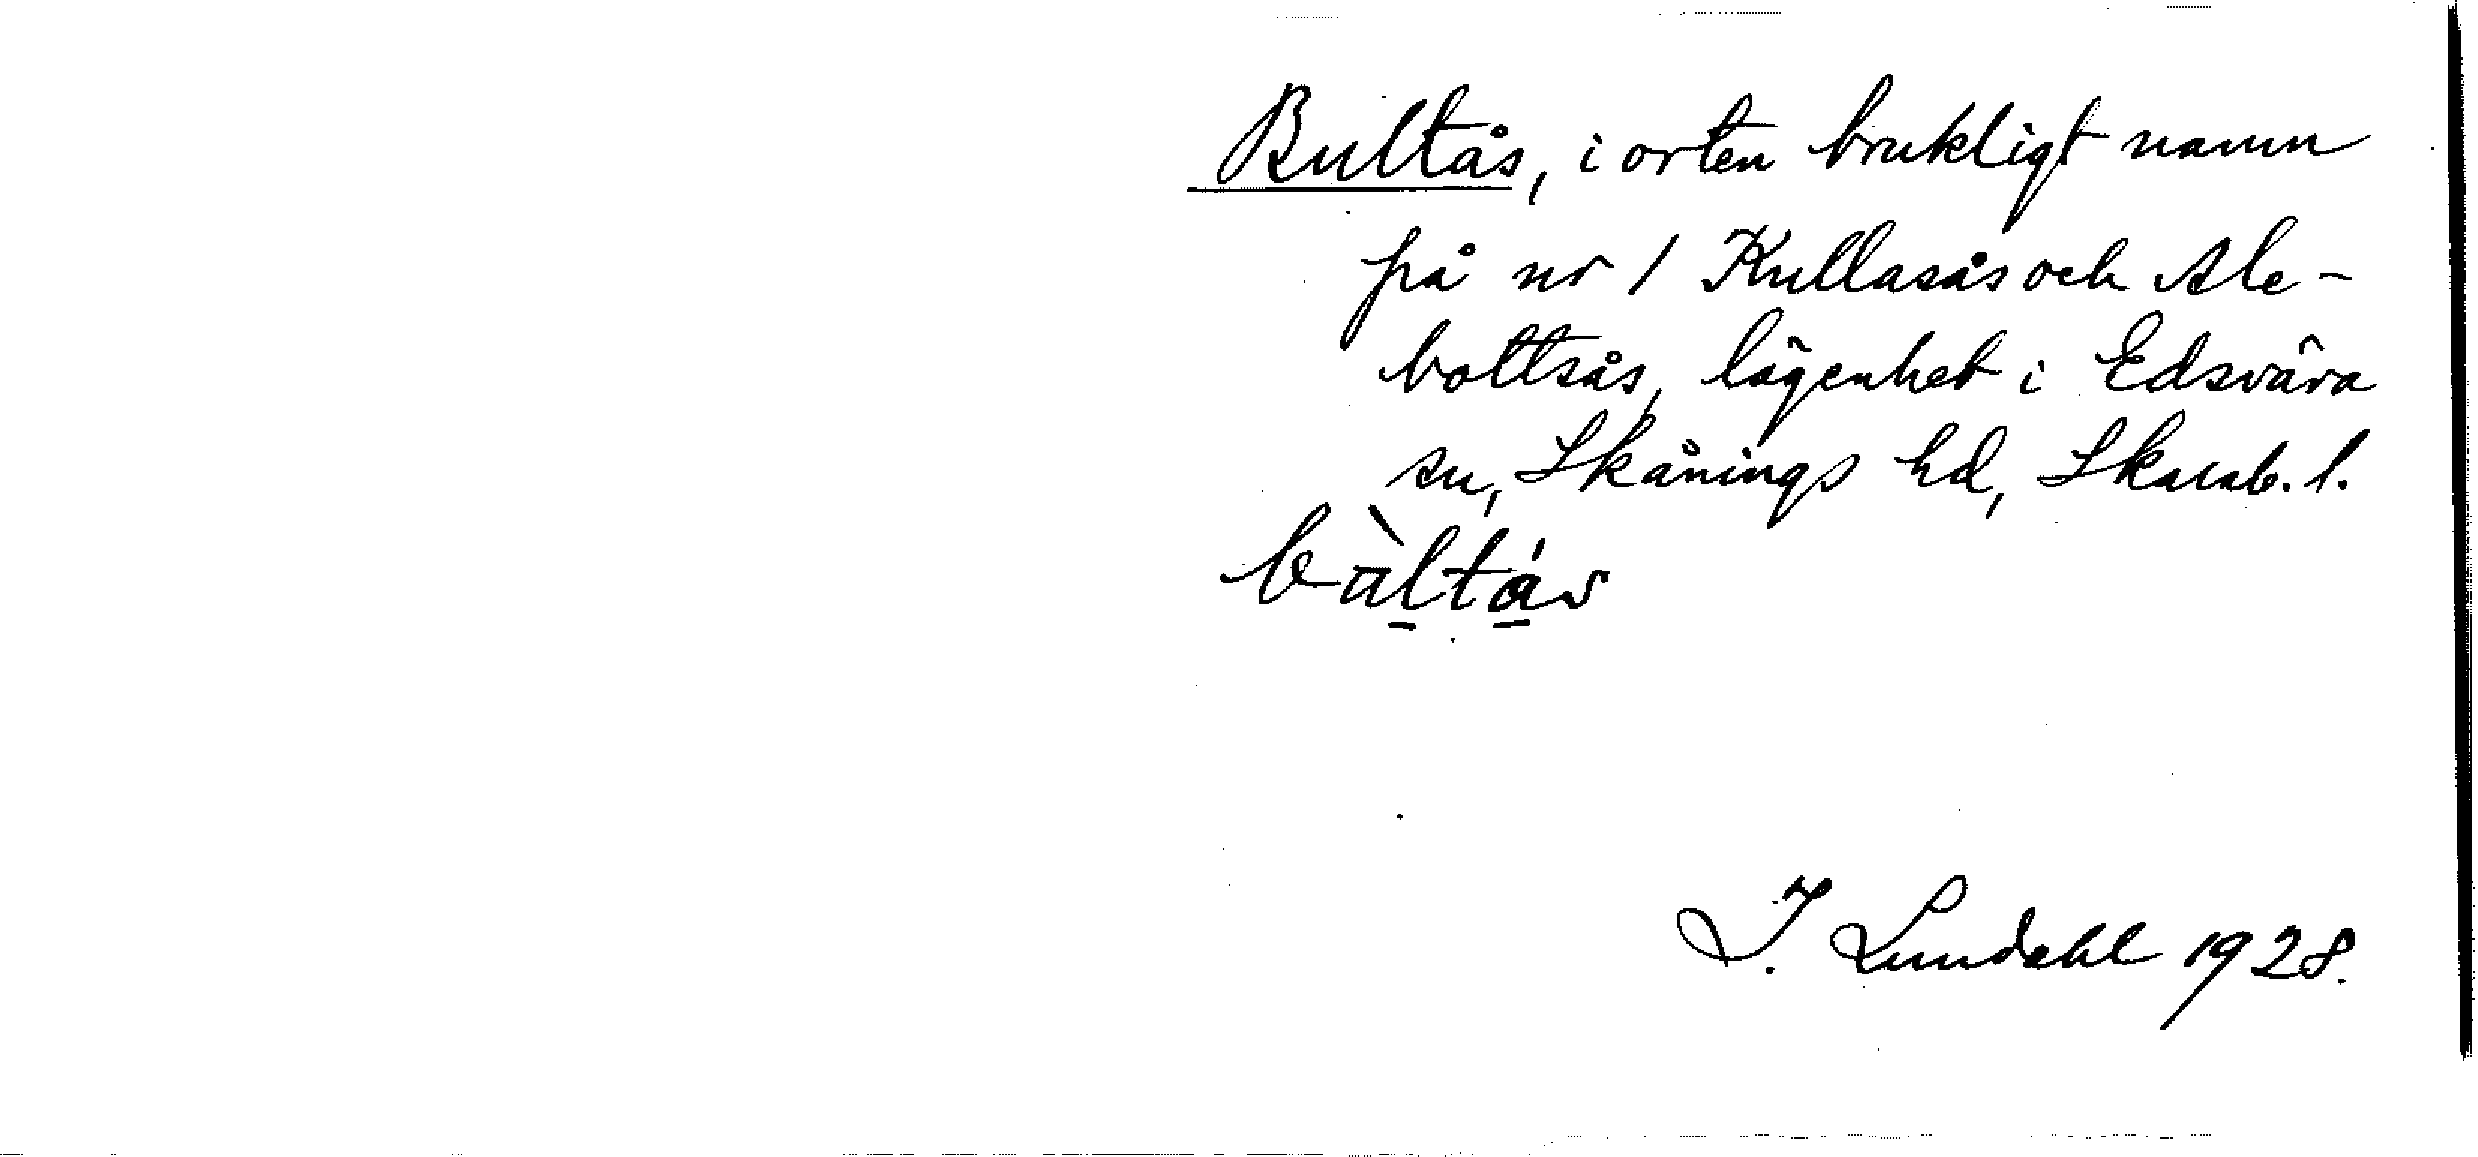 Bultås, i orten brukligt namn
på nr 1 Kullasås och Ale-
boltsås, lägenhet i Edsvära
sn, Skånings hd, Skarab. l.
bàltás
I. Lundahl 1928.